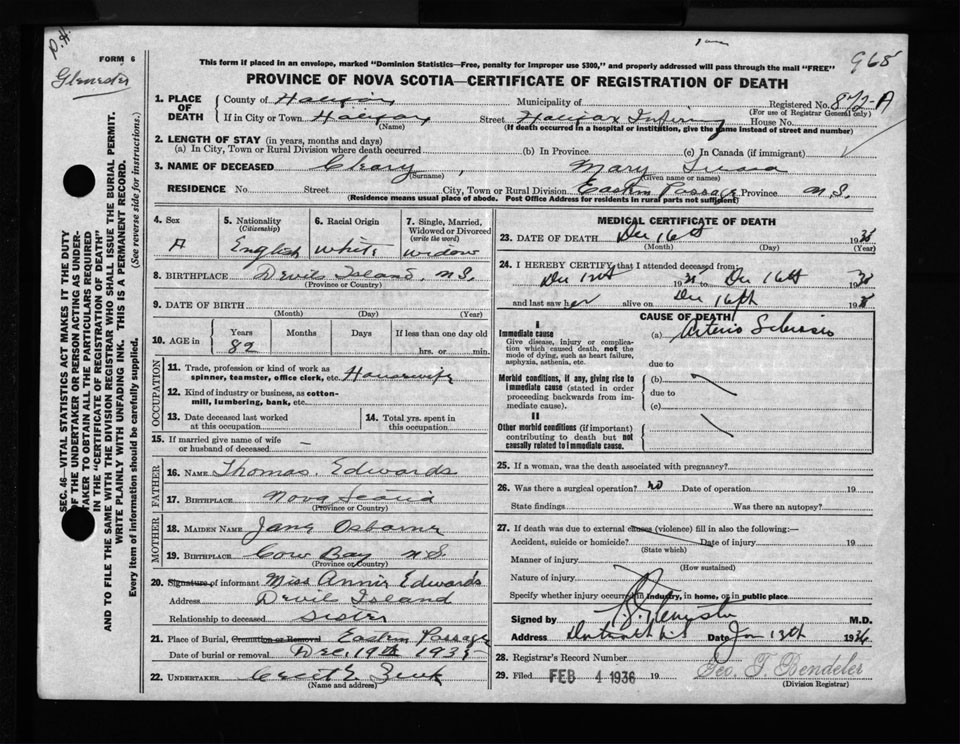 P.H.
Glenister
FORM 6
This form if placed in an envelope, marked "Dominion Statistics—Free, penalty for improper use $300," and properly addressed will pass through the mail "FREE"
965
PROVINCE OF NOVA SCOTIA—CERTIFICATE OF REGISTRATION OF DEATH
1. PLACE OF DEATH
County of Halifax Municipality of Registered No. 872-A
(For use of Registrar General only)
If in City or Town Halifax Street Halifax Infirmry House No.
(Name) (If death occurred in a hospital or institution, give the name instead of street and number)
2. LENGTH OF STAY (in years, months and days)
(a) In City, Town or Rural Division where death occurred (b) In Province (c) In Canada (if immigrant)
3. NAME OF DECEASED Cleary, Mary
(Surname) (Given name or names)
RESIDENCE No. Street City, Town or Rural Division Eastern Passage Province N.S.
(Residence means usual place of abode. Post Office Address for residents in rural parts not sufficient)
SEC. 46—VITAL STATISTICS ACT MAKES IT THE DUTY
OF THE UNDERTAKER OR PERSON ACTING AS UNDER-
TAKER TO OBTAIN ALL THE PARTICULARS REQUIRED
IN THE "CERTIFICATE OF REGISTRATION OF DEATH"
AND TO FILE THE SAME WITH THE DIVISION REGISTRAR WHO SHALL ISSUE THE BURIAL PERMIT.
WRITE PLAINLY WITH UNFADING INK. THIS IS A PERMANENT RECORD.
Every item of information should be carefully supplied. (See reverse side for instructions.)
4. Sex
5. Nationality (Citizenship) English
6. Racial Origin White
7. Single, Married, Widowed or Divorced (write the word) Widow
8. BIRTHPLACE Devils Island, N.S.
(Province or Country)
9. DATE OF BIRTH
(Month) (Day) (Year)
10. AGE in Years Months Days If less than one day old
82 hrs. or min.
OCCUPATION
11. Trade, profession or kind of work as
spinner, teamster, office clerk, etc. Housewife
12. Kind of industry or business, as cotton-
mill, lumbering, bank, etc.
13. Date deceased last worked at this occupation
14. Total yrs. spent in this occupation
15. If married give name of wife
or husband of deceased —
FATHER
16. NAME Thomas Edwards
17. BIRTHPLACE Nova Scotia
(Province or Country)
MOTHER
18. MAIDEN NAME Jane Osborne
19. BIRTHPLACE Cow Bay N.S.
(Province or Country)
20. Signature of informant Miss Annie Edwards
Address Devils Island
Relationship to deceased Sister
21. Place of Burial, Cremation or Removal Eastern Passage
Date of burial or removal Dec. 19th 1935
22. UNDERTAKER
(Name and address)
MEDICAL CERTIFICATE OF DEATH
23. DATE OF DEATH Dec 16th 1935
(Month) (Day) (Year)
24. I HEREBY CERTIFY that I attended deceased from:
Dec 12th 1935 to Dec 16th 1935
and last saw her alive on Dec 16th 1935
CAUSE OF DEATH
I
Immediate cause
Give disease, injury or complica-
tion which caused death, not the
mode of dying, such as heart failure,
asphyxia, asthenia, etc.
(a) Arterio Sclerosis
due to
Morbid conditions, if any, giving rise to
immediate cause (stated in order
proceeding backwards from im-
mediate cause).
(b)
due to
(c)
II
Other morbid conditions (if important)
contributing to death but not
causally related to immediate cause.
25. If a woman, was the death associated with pregnancy?
26. Was there a surgical operation? no Date of operation 19
State findings Was there an autopsy?
27. If death was due to external causes (violence) fill in also the following:—
Accident, suicide or homicide? Date of injury 19
(State which)
Manner of injury
(How sustained)
Nature of injury
Specify whether injury occurred in industry, in home, or in public place
Signed by M.D.
Address Date Jan 13th 1936
28. Registrar's Record Number
29. Filed FEB 4 1936 19 Geo. T. Bendeler
(Division Registrar)